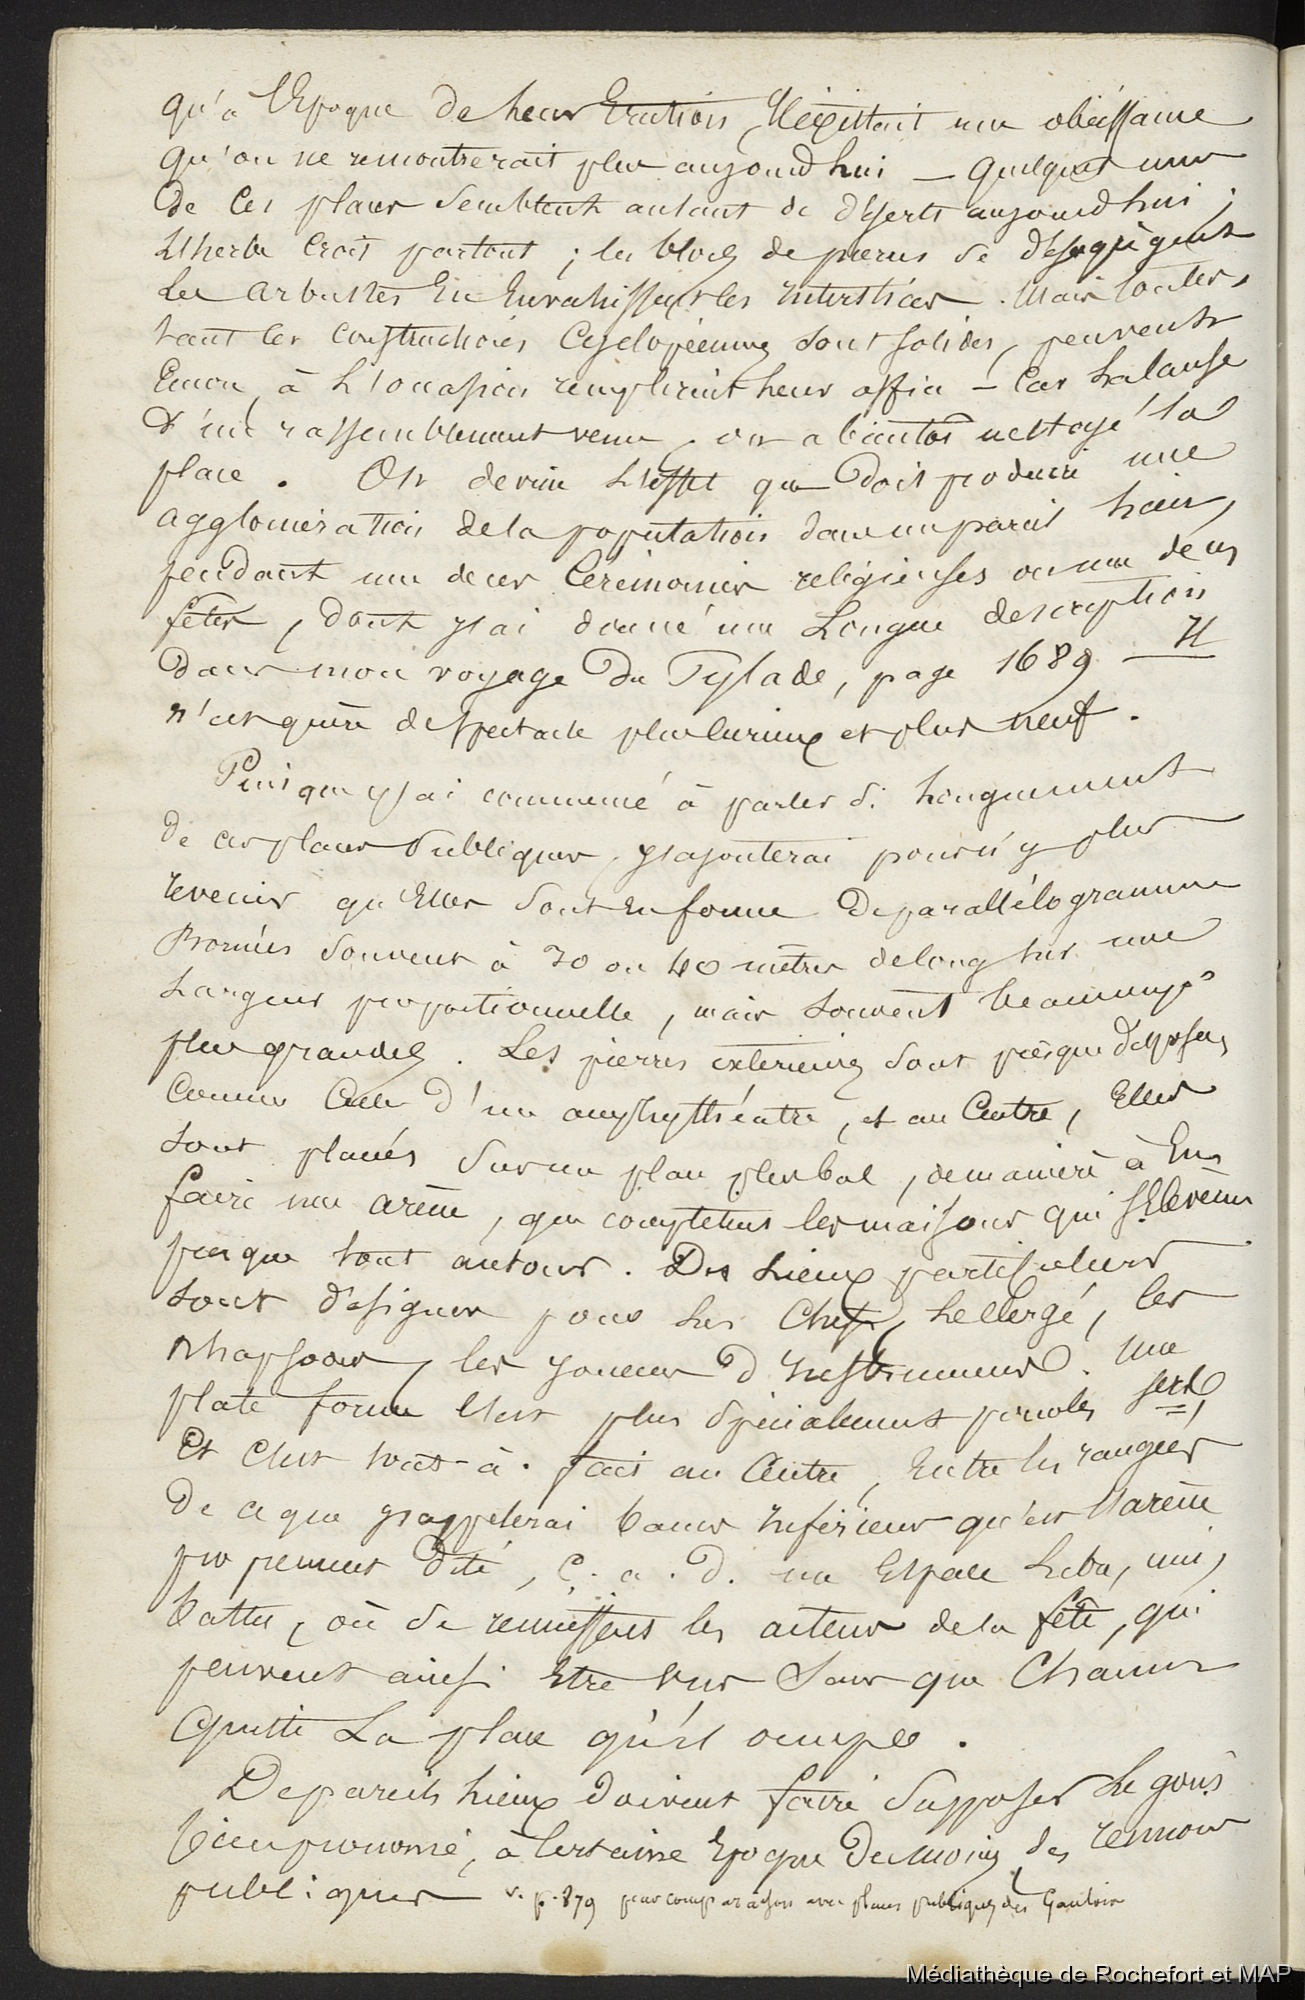 qu'à l'Epoque de leur Erection, il existait une obéissance
qu'on ne remontrerait plus aujourd'hui — quelques unes
de ces places semblent autant de déserts aujourd'hui ;
L'herbe croit partout ; les blocs de pierres se désagrègent
Les arbustes En Envahissent les interstices. Mais toutes,
tant les constructions Cyclopéennes sont solides, peuvent
Encore, à L'occasion remplir leur office — Car La cause
d'un rassemblement venue, on a bientôt nettoyé la
place. On devine L'effet que doit produire une
agglomération de la population dans un pareil lieu,
pendant une de ces Cérémonies religieuses ou une de ces
fêtes, dont j'ai donné une Longue description
dans mon voyage du Pylade, page 1689 — Il
n'est guère de spectacle plus curieux et plus neuf.
Puisque j'ai commencé à parler si longuement
de ces places publiques, j'ajouterai pour n'y plus
revenir qu'Elles sont en forme de parallélogramme
Bornées souvent à 30 ou 40 mètres de long sur une
Largeur proportionnelle, mais souvent beaucoup
plus grandes. Les pierres extérieures sont presque disposées
Comme Celles d'un amphythéatre, et au Centre, Elles
sont placées sur un plan plus bas, de manière à En
faire une arène, que complètent les maisons qui s'élèvent
presque tout autour. Des Lieux particuliers
sont désignés pour les Chefs, le Clergé, les
rhapsodes, les joueurs d'instrumens. une
plate forme Est plus spécialement pour les
Et C'est tout-à-fait au Centre, Entre les rangées
de ce que j'appelerai bancs inférieurs qu'est l'arène
proprement dite, C. a. d. un Espace libre, uni,
battu, où se réunissent les acteurs de la fête, qui
peuvent ainsi Etre vus sans que Chacun
quitte La place qu'il occupe.
De pareils Lieux doivent faire supposer Le goût
bien prononcé, à Certaine Epoque du moins, des réunions
publiques v. p. 879 pour comparaison avec places publiques des Gaulois
Médiathèque de Rochefort et MAP